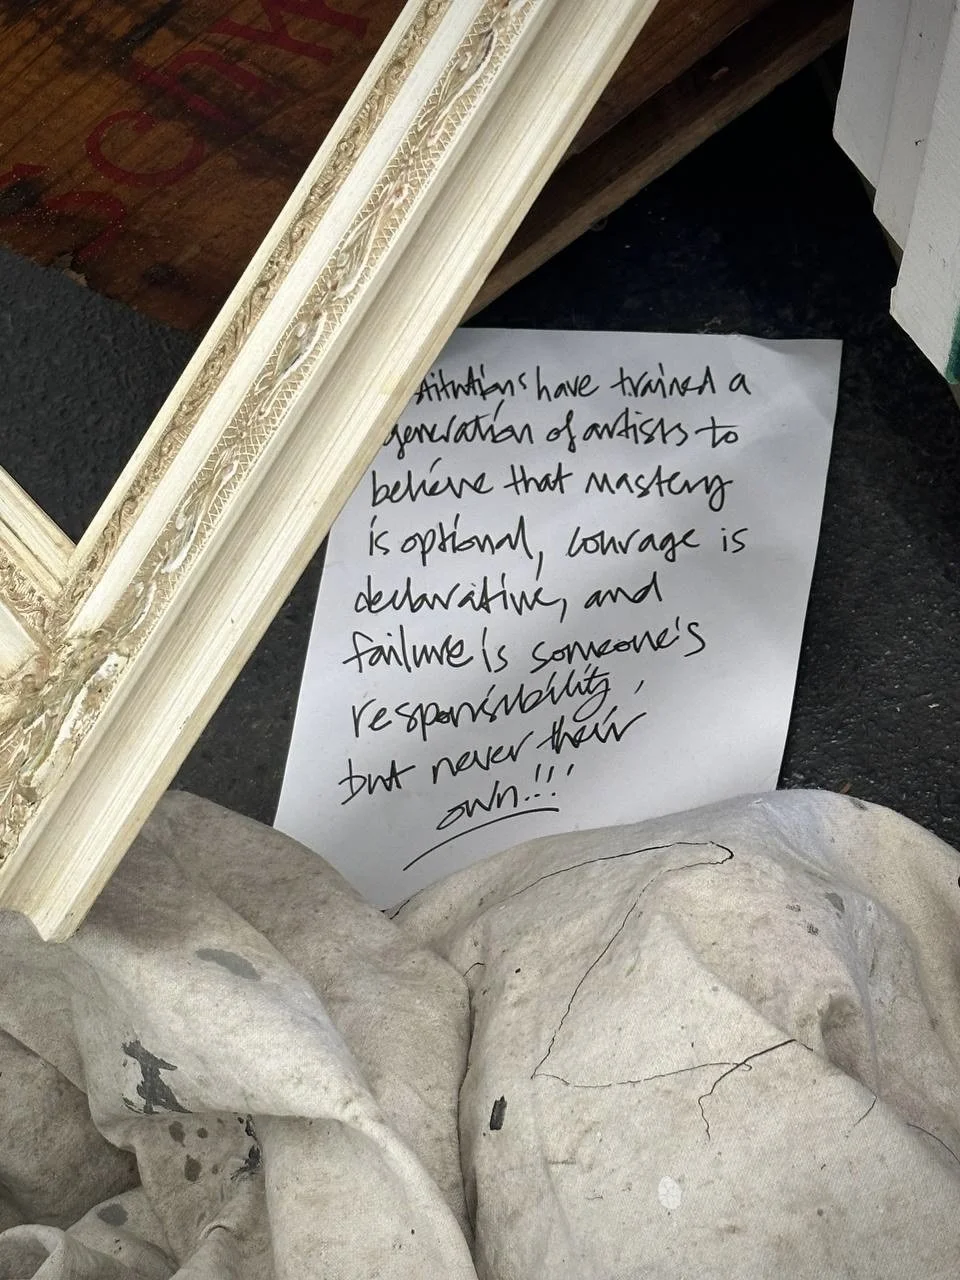 stitutions have trained a
generation of artists to
believe that mastery
is optional, courage is
declarative, and
failure is someone's
responsibility,
but never their
own!!!